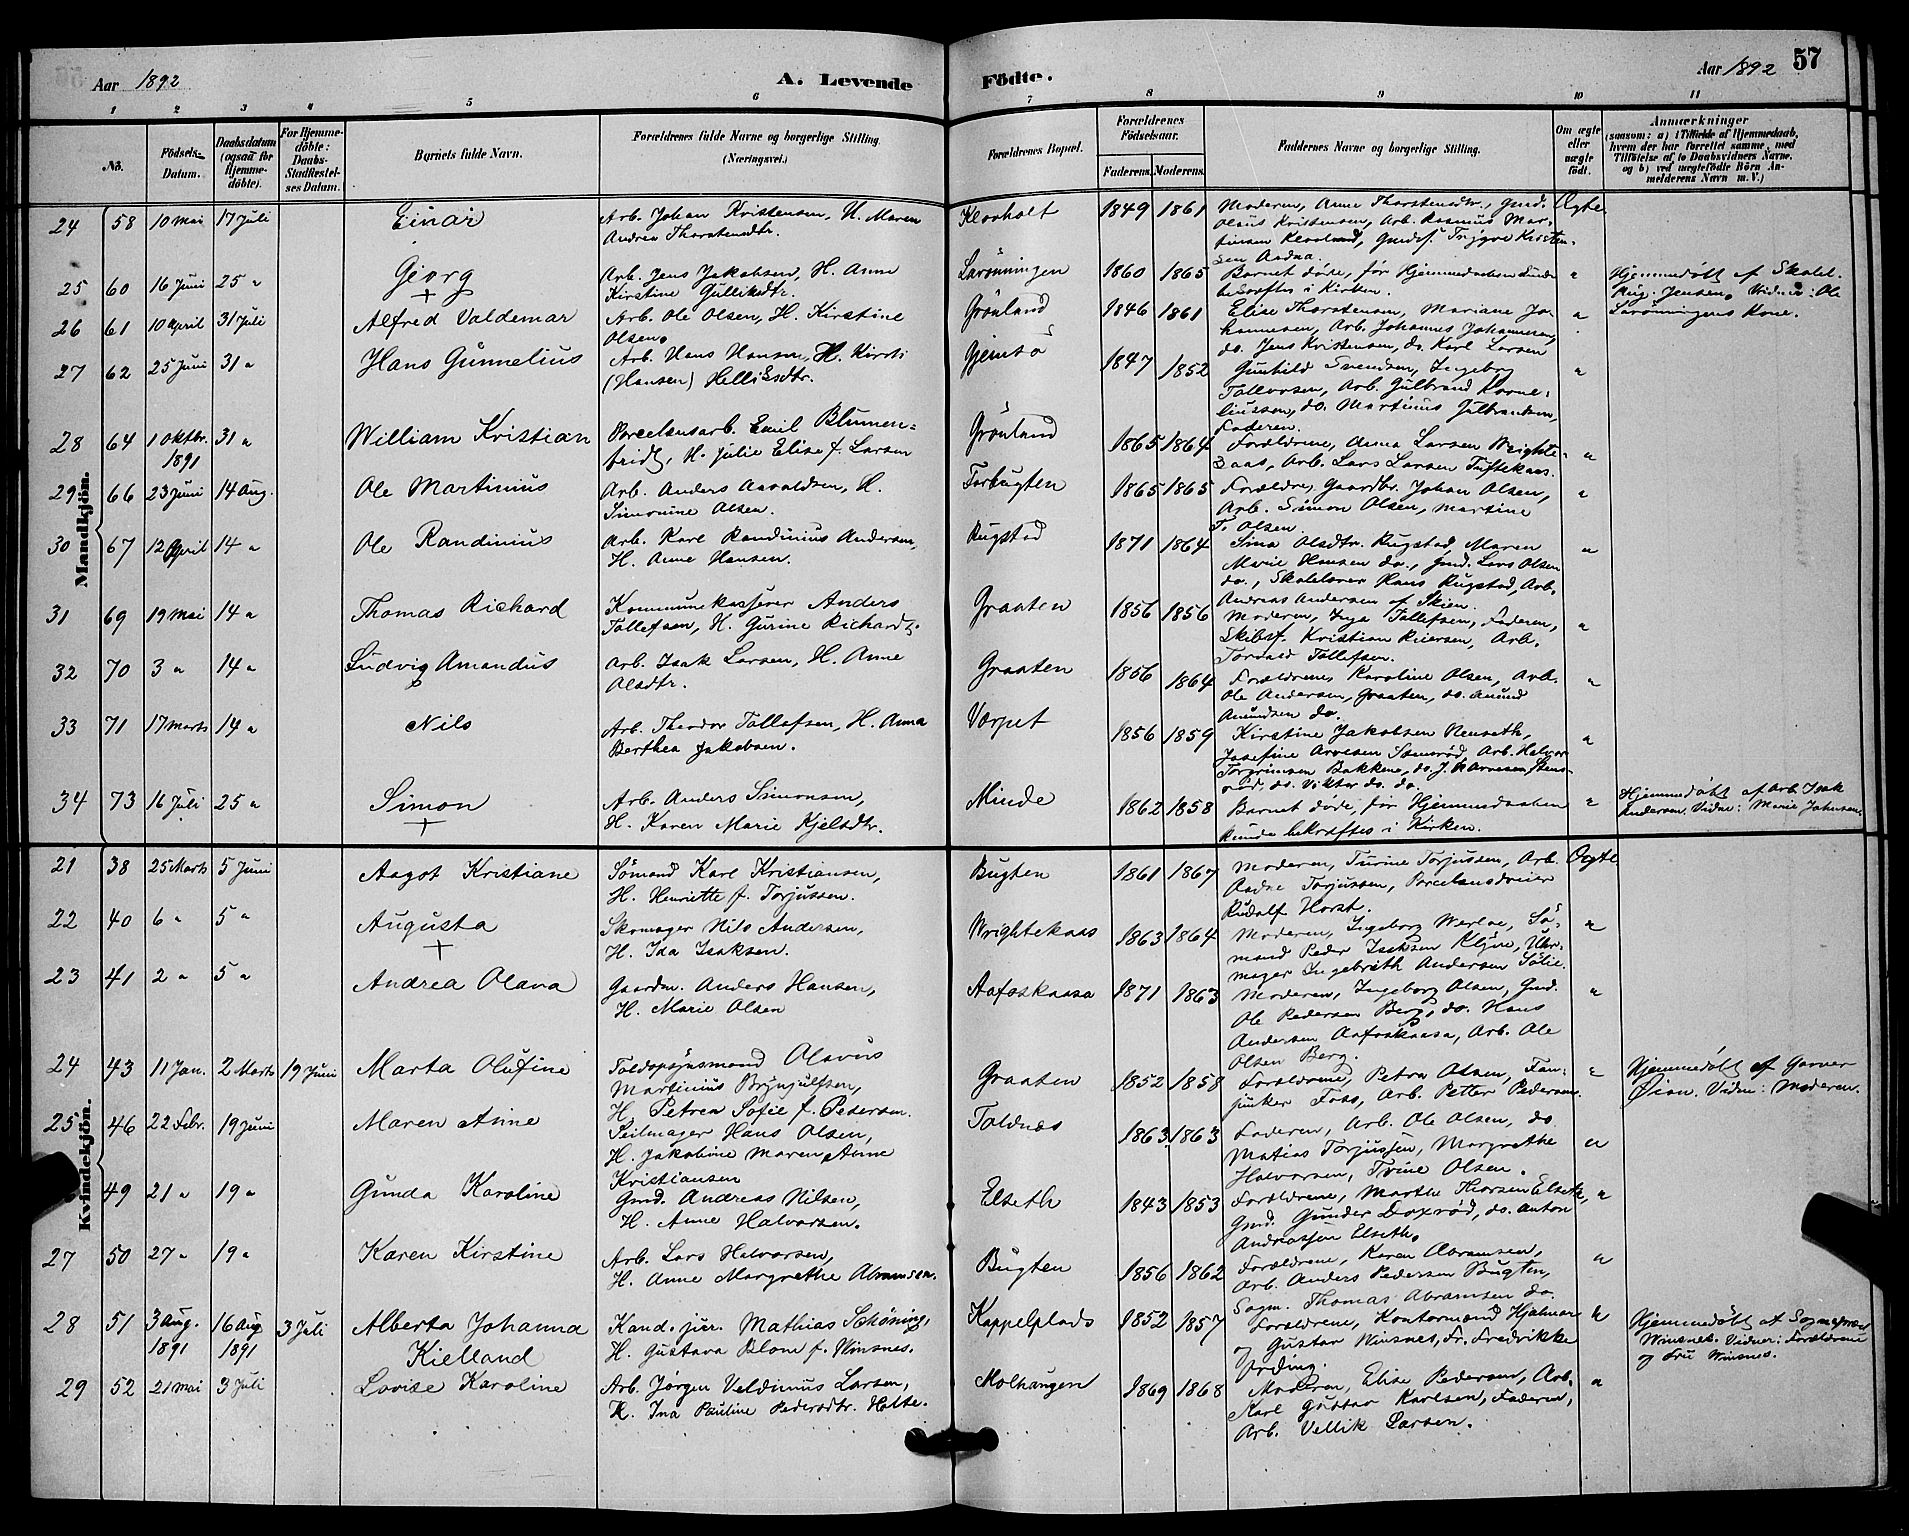 Aar 1892
A. Levende
Födte.
Aar 1892
57
1 2 3 4 5 6 7 8 9 10 11
No.
Födsels-Datum.
Daabsdatum (ogsaa for Hjemmedöbte).
For Hjemmedöbte: Daabs-Stadfæstelses Datum.
Barnets fulde Navn.
Forældrenes fulde Navne og borgerlige Stilling. (Næringsvei.)
Forældrenes Bopæl.
Forældrenes Födselsaar.
Faderens. Moderens.
Faddernes Navne og borgerlige Stilling.
Om ægte eller uægte födt.
Anmærkninger
(saasom: a) i Tilfælde af Hjemmedaab, hvem der har forrettet samme, med Tilföielse af to Daabsvidners Navne. og b) ved uægtefödte Börn Anmelderens Navn m. V.)
Mandkjön.
24 58 10 Mai 17 Juli Einar Arb. Johan Kristensen, H. Maren Klovholt 1849 1861 Moderen, Anne Thorstensdtr., Gmd. Ægte
Andrea Thorstensdtr. Olaus Kristensen, Arb. Rasmus Mar-
tinsen Klovland, Gmdsf. Trygve Kristen-
sen Aadna.
25 60 16 Juni 25 " Georg Arb. Jens Jakobsen, H. Anne Larönningen 1860 1865 Barnet döde, för Hjemmedaaben kunde " Hjemmedöbt af Skolel.
+ Kirstine Gulliksdtr. bekræftes i Kirken. Aug. Jensen. Vidne: Ole
Larönningens Kone.
26 61 10 April 31 Juli Alfred Valdemar Arb. Ole Olsen, H. Kirstine Grönland 1846 1861 Elise Thorstensen, Mariane Jo- "
Olsen. hannesen, Arb. Johannes Johannesen,
do. Jens Kristensen, do. Karl Larsen
27 62 25 Juni 31 " Hans Gunnelius Arb. Hans Hansen, H. Kirsti Gjemsö 1847 1852 Gunhild Svendsen, Ingeborg "
(Hansen) Helliksdtr. Tollevsen, Arb. Gulbrand Korne-
liussen, do. Martinus Gulbrandsen,
Faderen.
28 64 1 Oktbr. 31 " William Kristian Porcelænsarb. Emil Blumen- Grönland 1865 1864 Forældrene, Anna Larsen Wrighte- "
1891 fridt, H. Julie Elise f. Larsen kaas, Arb. Lars Larsen Tuftekaas.
29 66 23 Juni 14 Aug. Ole Martinius Arb. Anders Aavoldsen, H. Torbugten 1865 1865 Forældre, Gaardbr. Johan Olsen, "
Simonine Olsen. Arb. Simon Olsen, Martine
T. Olsen.
30 67 12 April 14 " Ole Randinius Arb. Karl Randinius Andersen, Rugstad 1871 1864 Sina Olsdtr. Rugstad, Maren "
H. Anne Hansen. Marie Hansen do., Gmd. Lars Olsen
do., Skolelærer Hans Rugstad, Arb.
Andreas Andersen af Skien.
31 69 19 Mai 14 " Thomas Richard Kommunekasserer Anders Graaten 1856 1856 Moderen, Inga Tollefsen, Faderen, "
Tollefsen, H. Gurine Richardt. Skibsf. Kristian Reiersen, Arb.
Torvald Tollefsen.
32 70 3 " 14 " Ludvig Amandus Arb. Isak Larsen, H. Anne Graaten 1856 1864 Forældrene, Karoline Olsen, Arb. "
Olsdtr. Ole Andersen, Graaten, do. Amund
Amundsen do.
33 71 17 Marts 14 " Nils Arb. Theodor Tollefsen, H. Anna Værpet 1856 1859 Kirstine Jakobsen Renseth, "
Berthea Jakobsen. Josefine Arvesen Stensrød, Arb. Halvor
Torgrimsen Bakkene, do. J. Arvesen Stens-
rød, do. Viktor do. do.
34 73 16 Juli 25 " Simon Arb. Anders Simonsen, Minde 1862 1858 Barnet döde, för Hjemmedaaben " Hjemmedöbt af Arb. Isak
+ H. Karen Marie Kjelsdtr. kunde bekræftes i Kirken. Andersen. Vidne: Marie Johnsen.
Kvindekjön.
21 38 25 Marts 5 Juni Aagot Kristiane Sömand Karl Kristiansen, Bugten 1861 1867 Moderen, Turine Torjussen, Arb. Ægte
H. Henriette f. Torjussen. Aadne Torjussen, Porcelænsdreier
Rudolf Horst.
22 40 6 " 5 " Augusta Skomager Nils Andersen, Wrightekaas 1863 1864 Moderen, Ingeborg Werloe, Sö- "
+ H. Ida Isaksen. mand Peder Isaksen Klyve, Uhr-
mager Ingebreth Andersen Sölie.
23 41 2 " 5 " Andrea Olava Gaardm. Anders Hansen, Aafoskaasa 1871 1863 Moderen, Ingeborg Olsen, Gmd. "
H. Marie Olsen Ole Pedersen Berg, do. Hans
Andersen Aafoskaasa, Arb. Ole
Olsen Berg.
24 43 11 Jan. 2 Marts 19 Juni Marta Olufine Toldopsynsmand Olavus Graaten 1852 1858 Forældrene, Petra Olsen, Fan- " Hjemmedöbt af Garver
Martinius Brynjulfsen, junker Foss, Arb. Petter Pedersen. Øian. Vidne: Moderen.
H. Petrea Sofie f. Pedersen.
25 46 22 Febr. 19 Juni Maren Anne Seilmager Hans Olsen, Toldnæs 1863 1863 Faderen, Arb. Ole Olsen, do. "
H. Jakobine Maren Anne Matias Torjussen, Margrethe
Kristiansen Halvorsen, Trine Olsen.
49 21 " 19 " Gunda Karoline Gmd. Andreas Nilsen, Elseth 1843 1853 Forældrene, Marthe Thorsen Elseth, "
H. Anne Halvorsen. Gmd. Gunder Doxrød, do. Anton
Andreassen Elseth.
27 50 27 " 19 " Karen Kirstine Arb. Lars Halvorsen, Bugten 1856 1862 Forældrene, Karen Abramsen, "
H. Anne Margrethe Abramsen. Arb. Anders Pedersen Bugten,
Sagm. Thomas Abramsen do.
28 51 3 Aug. 16 Aug 3 Juli Alberta Johanna Kand. jur. Mathias Schöning, Kappelplads 1852 1857 Forældrene, Kontormænd Hjalmar " Hjemmedöbt af Sognepræst
1891 1891 Kielland H. Gustava Blom f. Winsnes. og Gustav Winsnes, Fr. Fredrikke Winsnes. Vidner: Forældrene
Ording. og Fru Winsnes.
29 52 21 Mai 3 Juli Lovise Karoline Arb. Jörgen Veldinus Larsen, Molhaugen 1869 1868 Moderen, Elise Pedersen, Arb. "
H. Ina Pauline Pedersdtr. Holte. Karl Gustav Karlsen, Faderen,
Arb. Vellik Larsen.